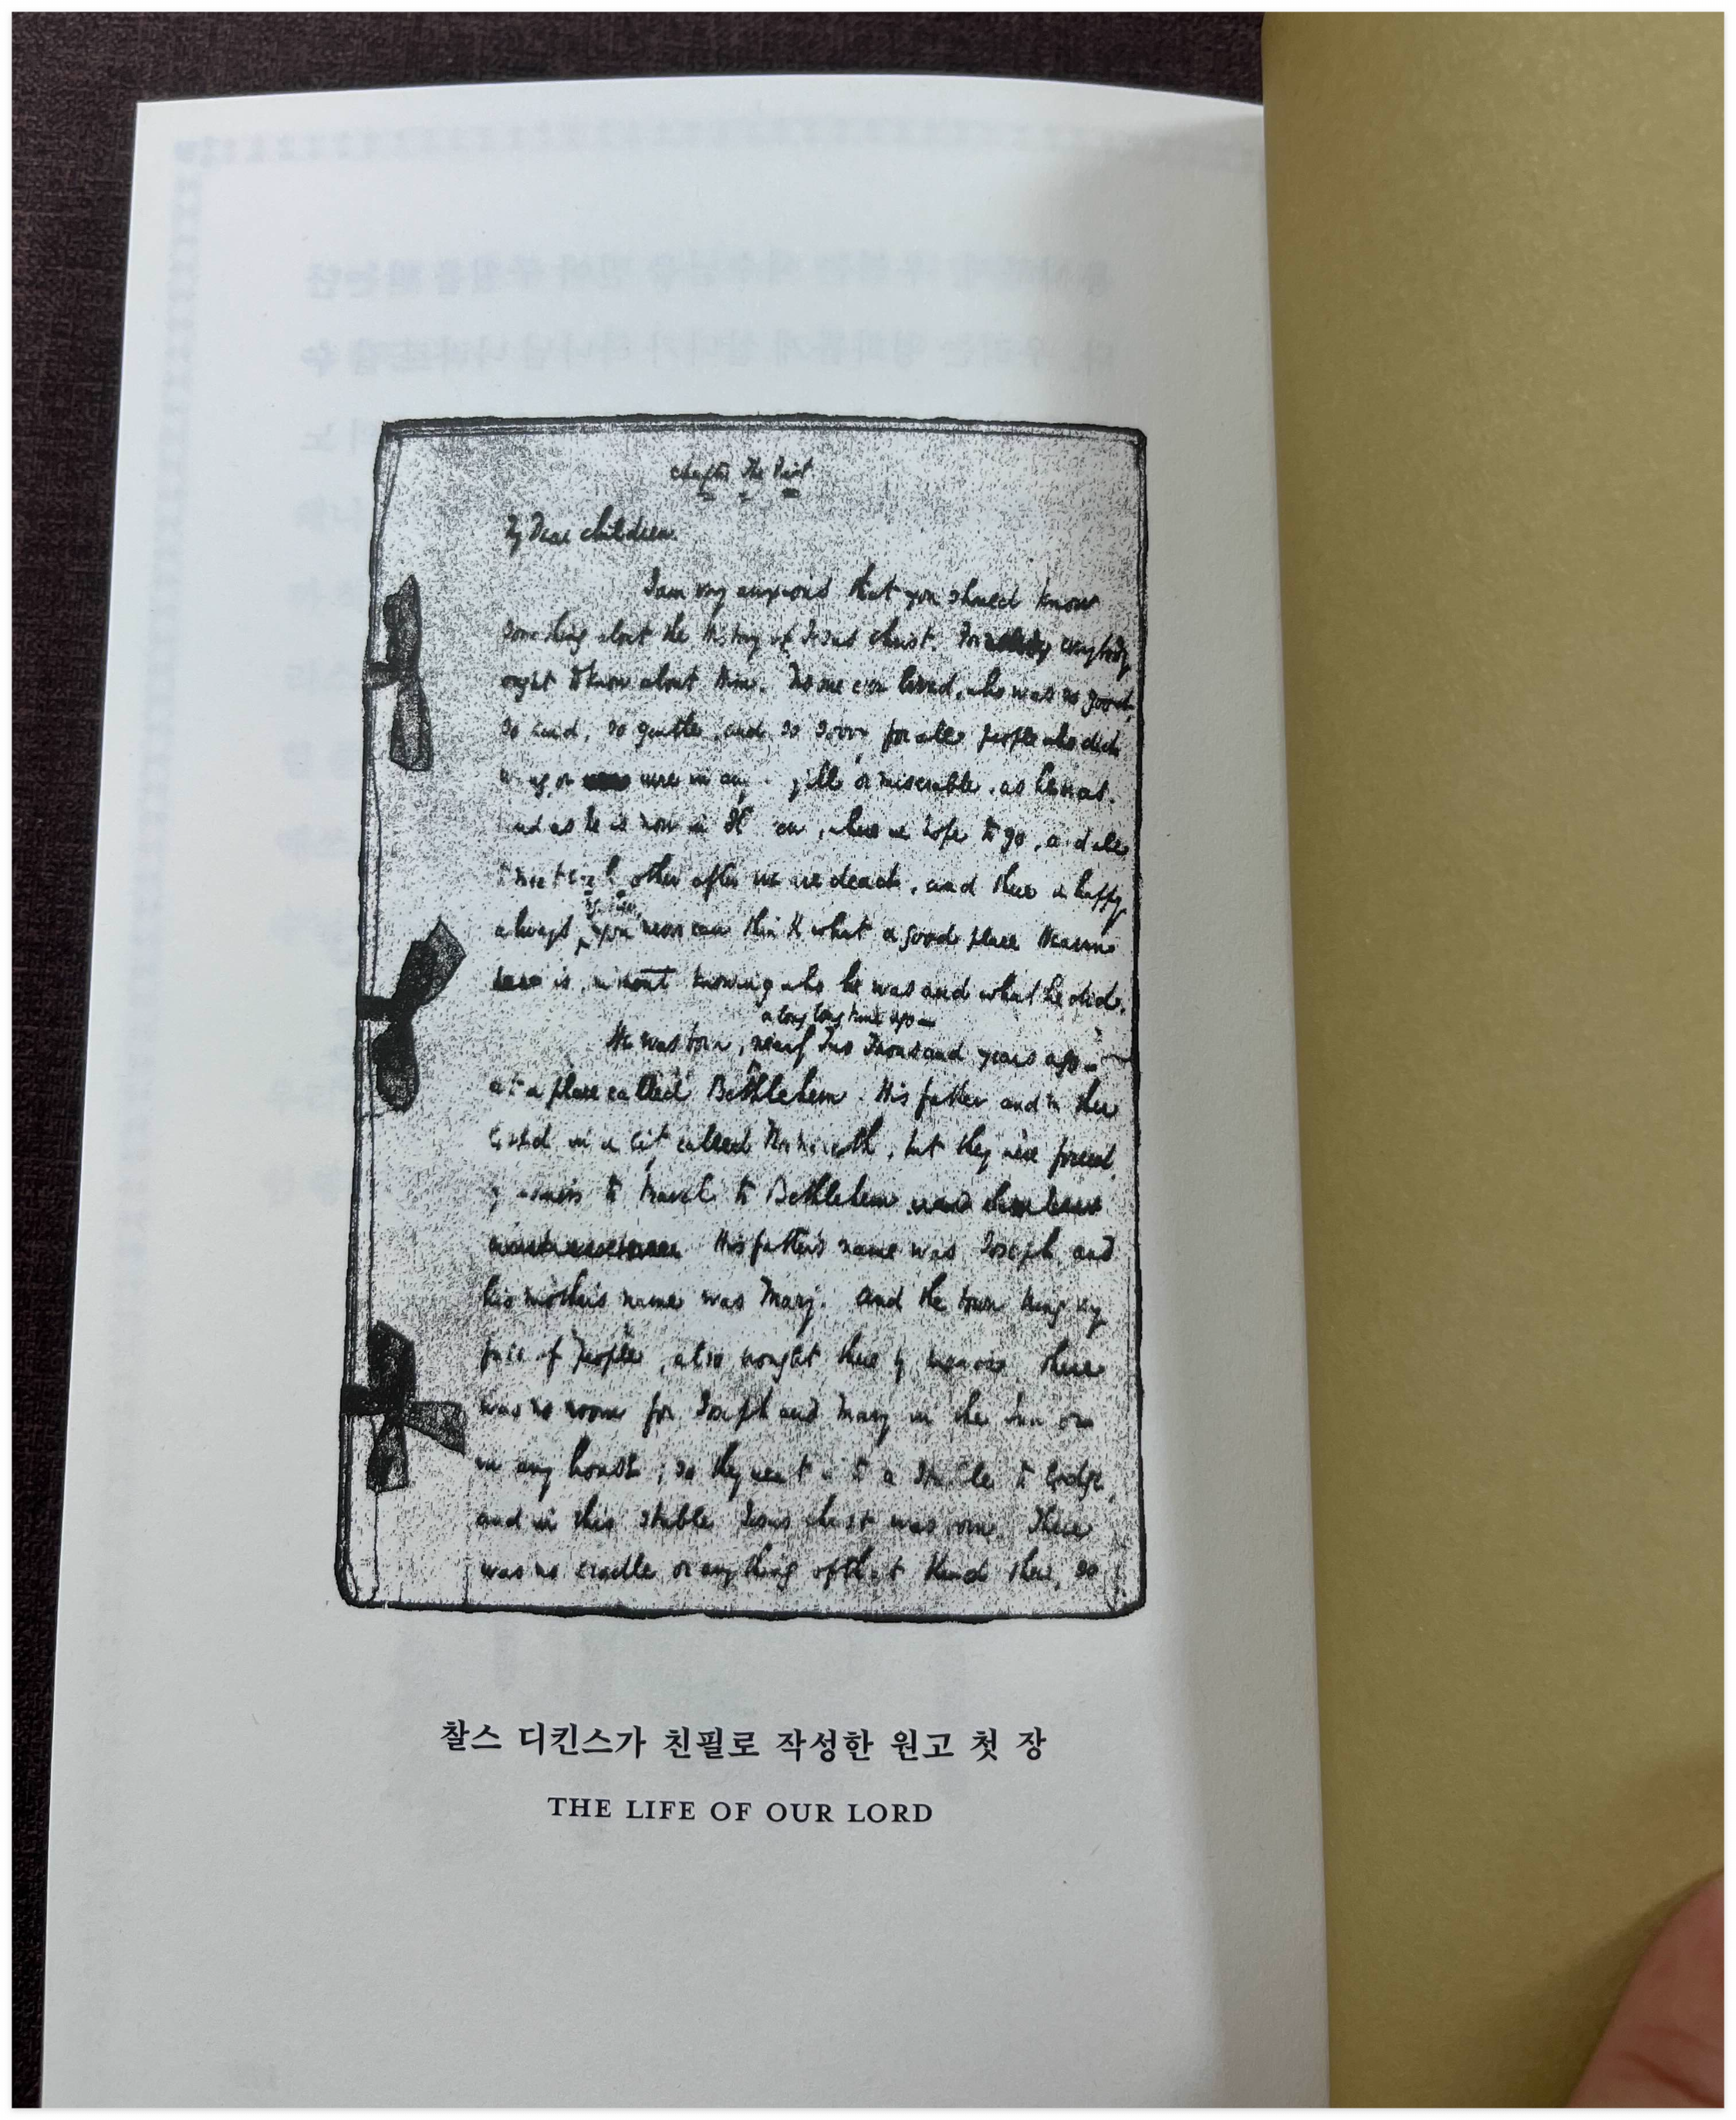 Chapter the First
My Dear Children
I am very anxious that you should know
something about the History of Jesus Christ. For everybody
ought to know about Him. No one ever lived, who was so good,
so kind, so gentle, and so sorry for all people who did
wrong, or were in any ill or miserable, as he was.
And as he is now in Heaven, where we hope to go, and all
to meet each other after we are dead, and there be happy
always, you never can think what a good place Heaven
is, without knowing who he was and what he did.
a long long time ago—
He was born, nearly Two Thousand years ago—
at a place called Bethlehem. His father and mother
lived in a city called Nazareth, but they were forced,
by business to travel to Bethlehem
His father's name was Joseph, and
his mother's name was Mary. And the town being very
full of people, also brought there by business, there
was no room for Joseph and Mary in the Inn or
in any house; so they went to a Stable to lodge,
and in this stable Jesus Christ was born. There
was no cradle or anything of that kind there, so
찰스 디킨스가 친필로 작성한 원고 첫 장
THE LIFE OF OUR LORD